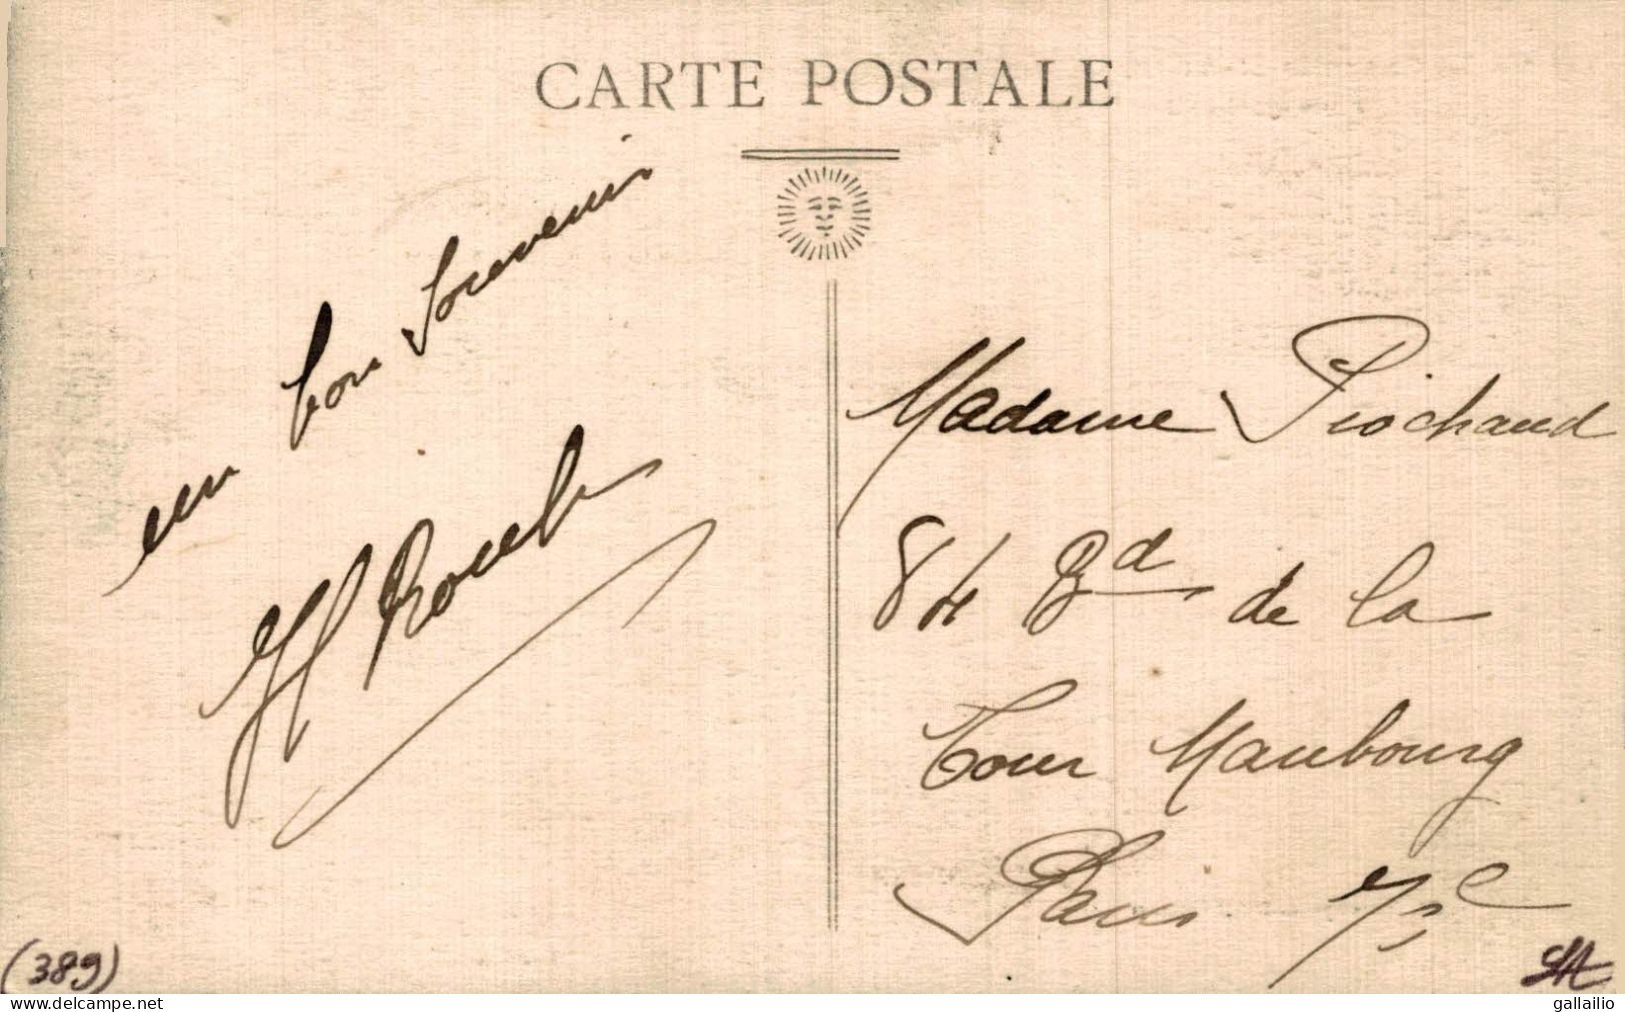 CARTE POSTALE
un bon Souvenir
Madame Piochaud
84 Bd de la
Tour Maubourg
Paris 7e
(389)
www.delcampe.net
gallailio